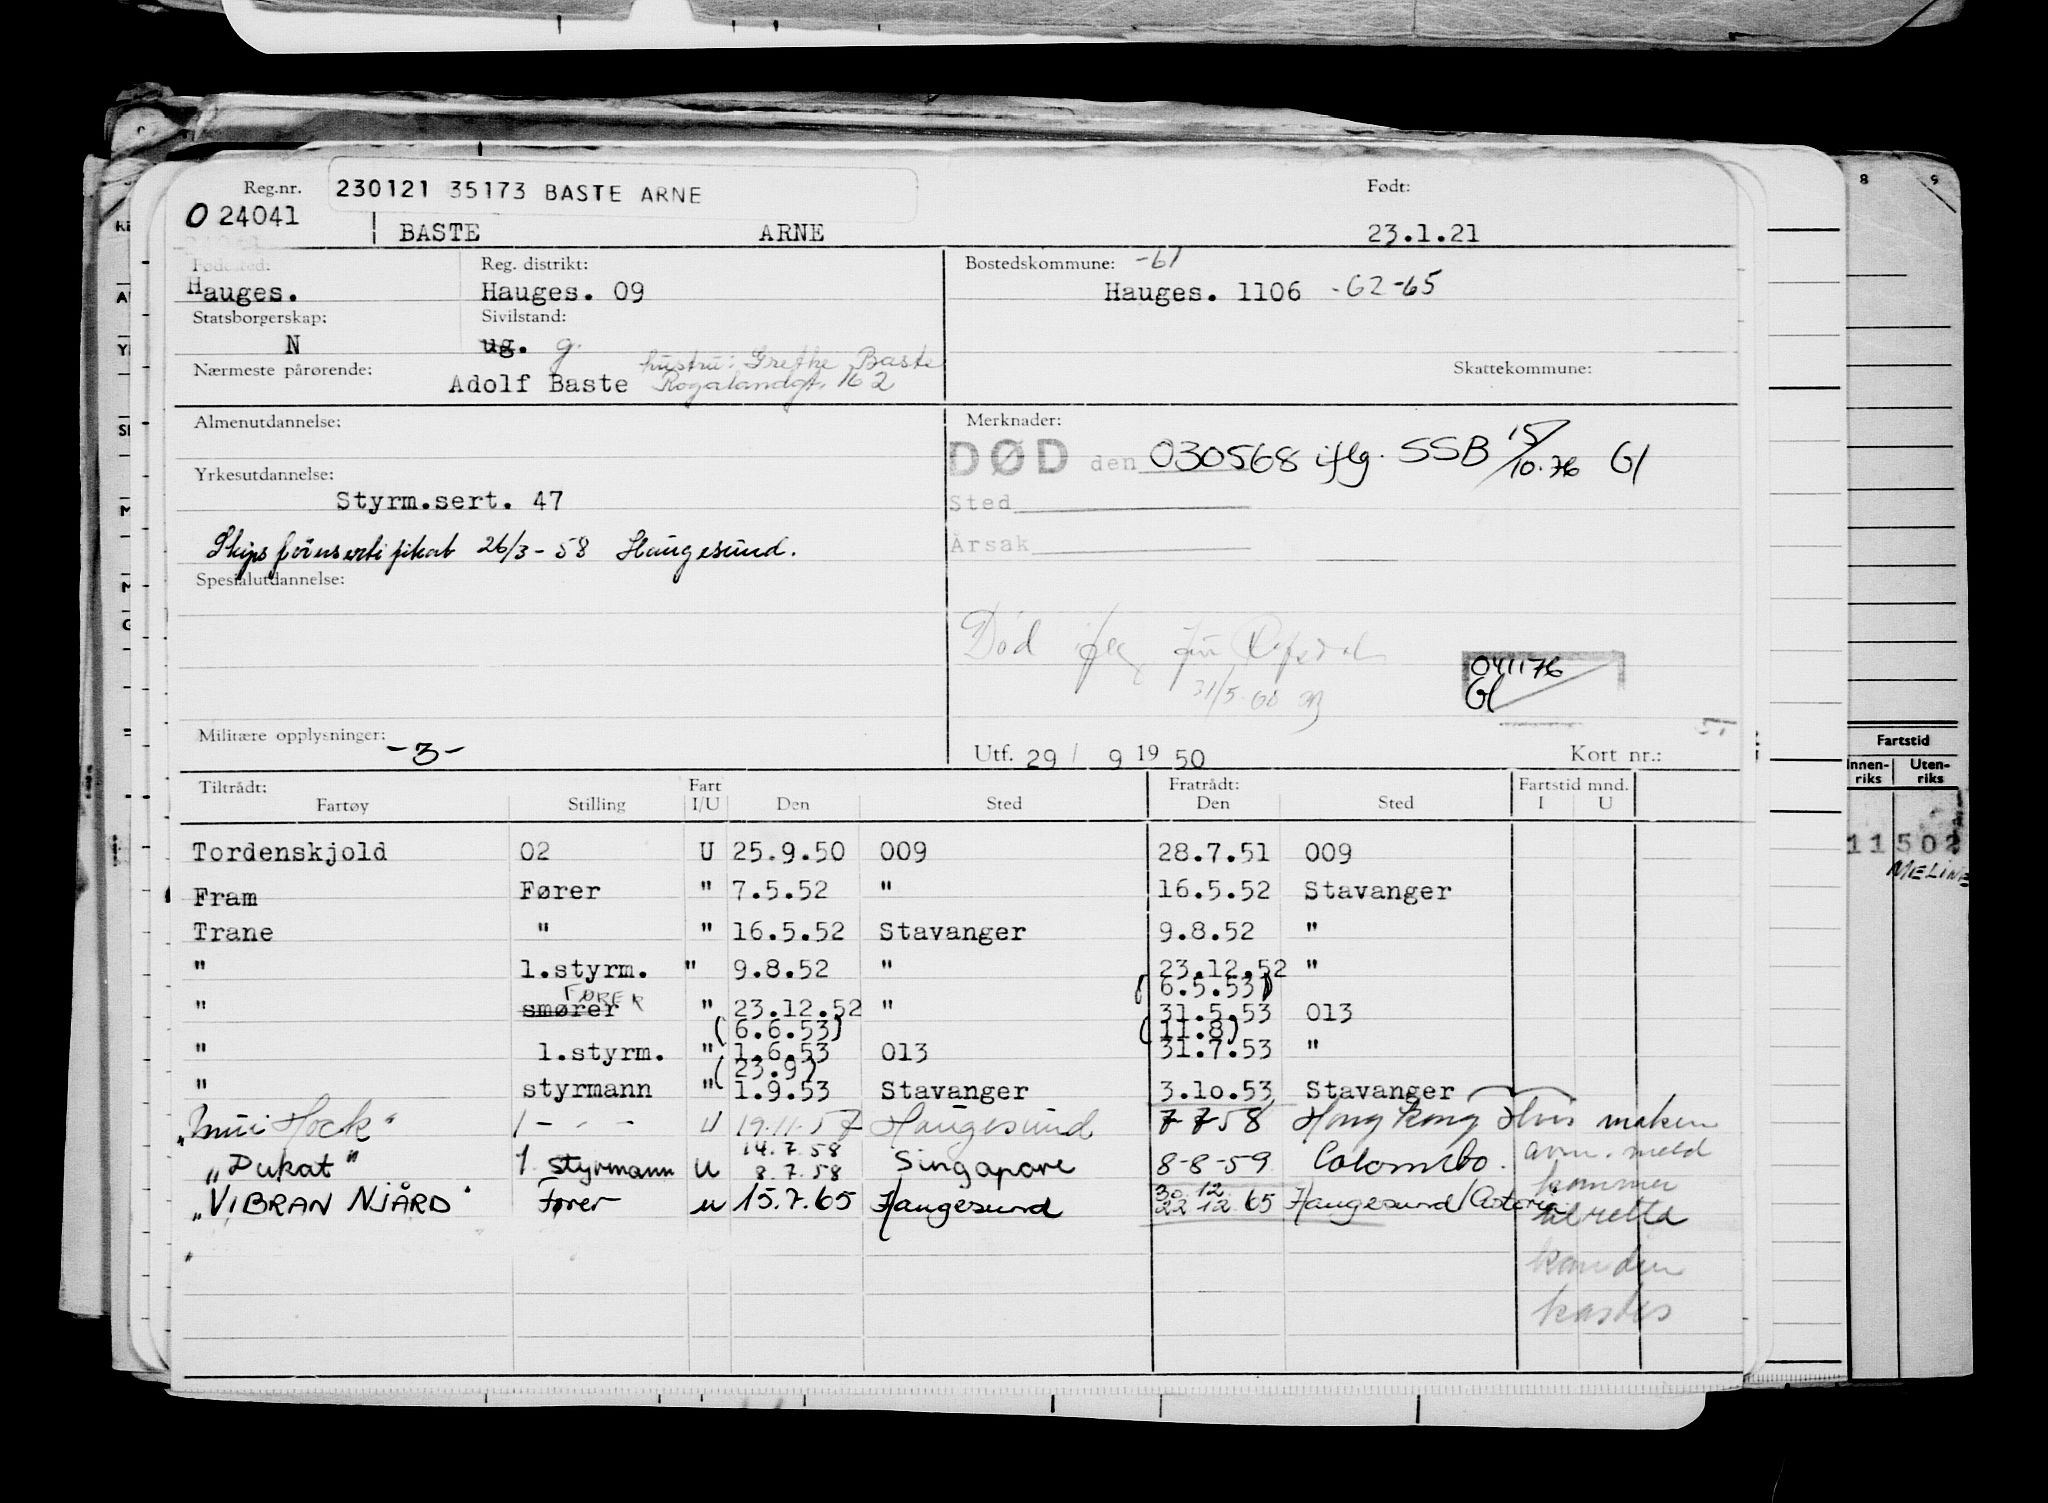 Reg.nr. 230121 35173 BASTE ARNE Født:
O 24041
BASTE ARNE 23.1.21
Fødested: Reg. distrikt: Bostedskommune: -61
Hauges. Hauges. 09 Hauges. 1106 -62-65
Statsborgerskap: Sivilstand:
N ug. g.
Nærmeste pårørende: hustru: Grethe Baste Skattekommune:
Adolf Baste Rogalandgt. 162
Almenutdannelse: Merknader:
DØD den 030568 iflg. SSB 15/10.76 Gl
Yrkesutdannelse:
Styrm.sert. 47 Sted
Skipsførersertifikat 26/3-58 Haugesund. Årsak
Spesialutdannelse:
Død iflg
041176
Gl
31/5.68
Militære opplysninger: -3- Utf. 29/ 9 19 50 Kort nr.:
Tiltrådt: Fart Fratrådt: Fartstid mnd.
Fartøy Stilling I/U Den Sted Den Sted I U
Tordenskjold 02 U 25.9.50 009 28.7.51 009
Fram Fører " 7.5.52 " 16.5.52 Stavanger
Trane " " 16.5.52 Stavanger 9.8.52 "
" 1.styrm. " 9.8.52 " 23.12.52 "
FØRER (6.5.53)
" smører " 23.12.52 " 31.5.53 013
(6.6.53) (11.8)
" 1.styrm. " 1.6.53 013 31.7.53 "
(23.9)
" styrmann " 1.9.53 Stavanger 3.10.53 Stavanger
Hock" 1 - - - U 19.11.57 Haugesund 7-7-58 Hong Kong Hvis maken
14.7.58
"Dukat" 1 styrmann U 8.7.58 Singapore 8-8-59 Colombo. avm. meld
kommer
30.12
"VIBRAN NJÅRD" Fører u 15.7.65 Haugesund 22.12.65 Haugesund/Astoria
tilrette
kan den
kastes
8 9
Fartstid
Innen-riks Uten-riks
11502
MELINE